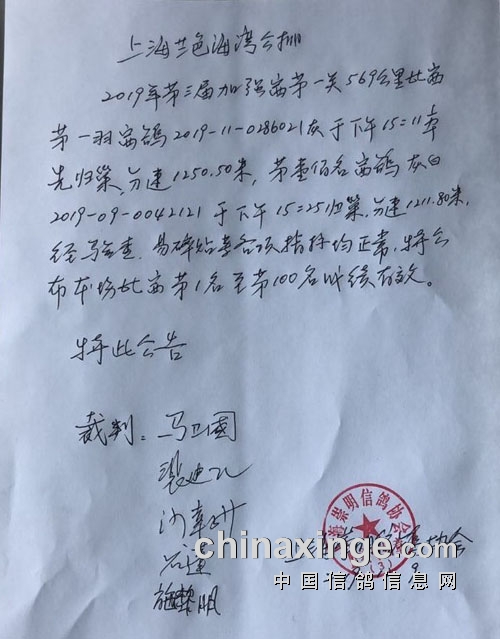 上海兰色海湾公棚
2019年第三届加强赛第一关569公里比赛
第一羽赛鸽2019-11-0286021灰于下午15:11率
先归巢,分速1250.50米,第壹佰名赛鸽灰白
2019-09-0042121于下午15:25归巢,分速1211.80米,
经验查,易碎贴等各项指标均正常,特公
布本场比赛第1名至第100名成绩有效。
特此公告
裁判:马卫国
石建
海崇明信鸽协会
协会
chinaxinge.com
中国信鸽信息网